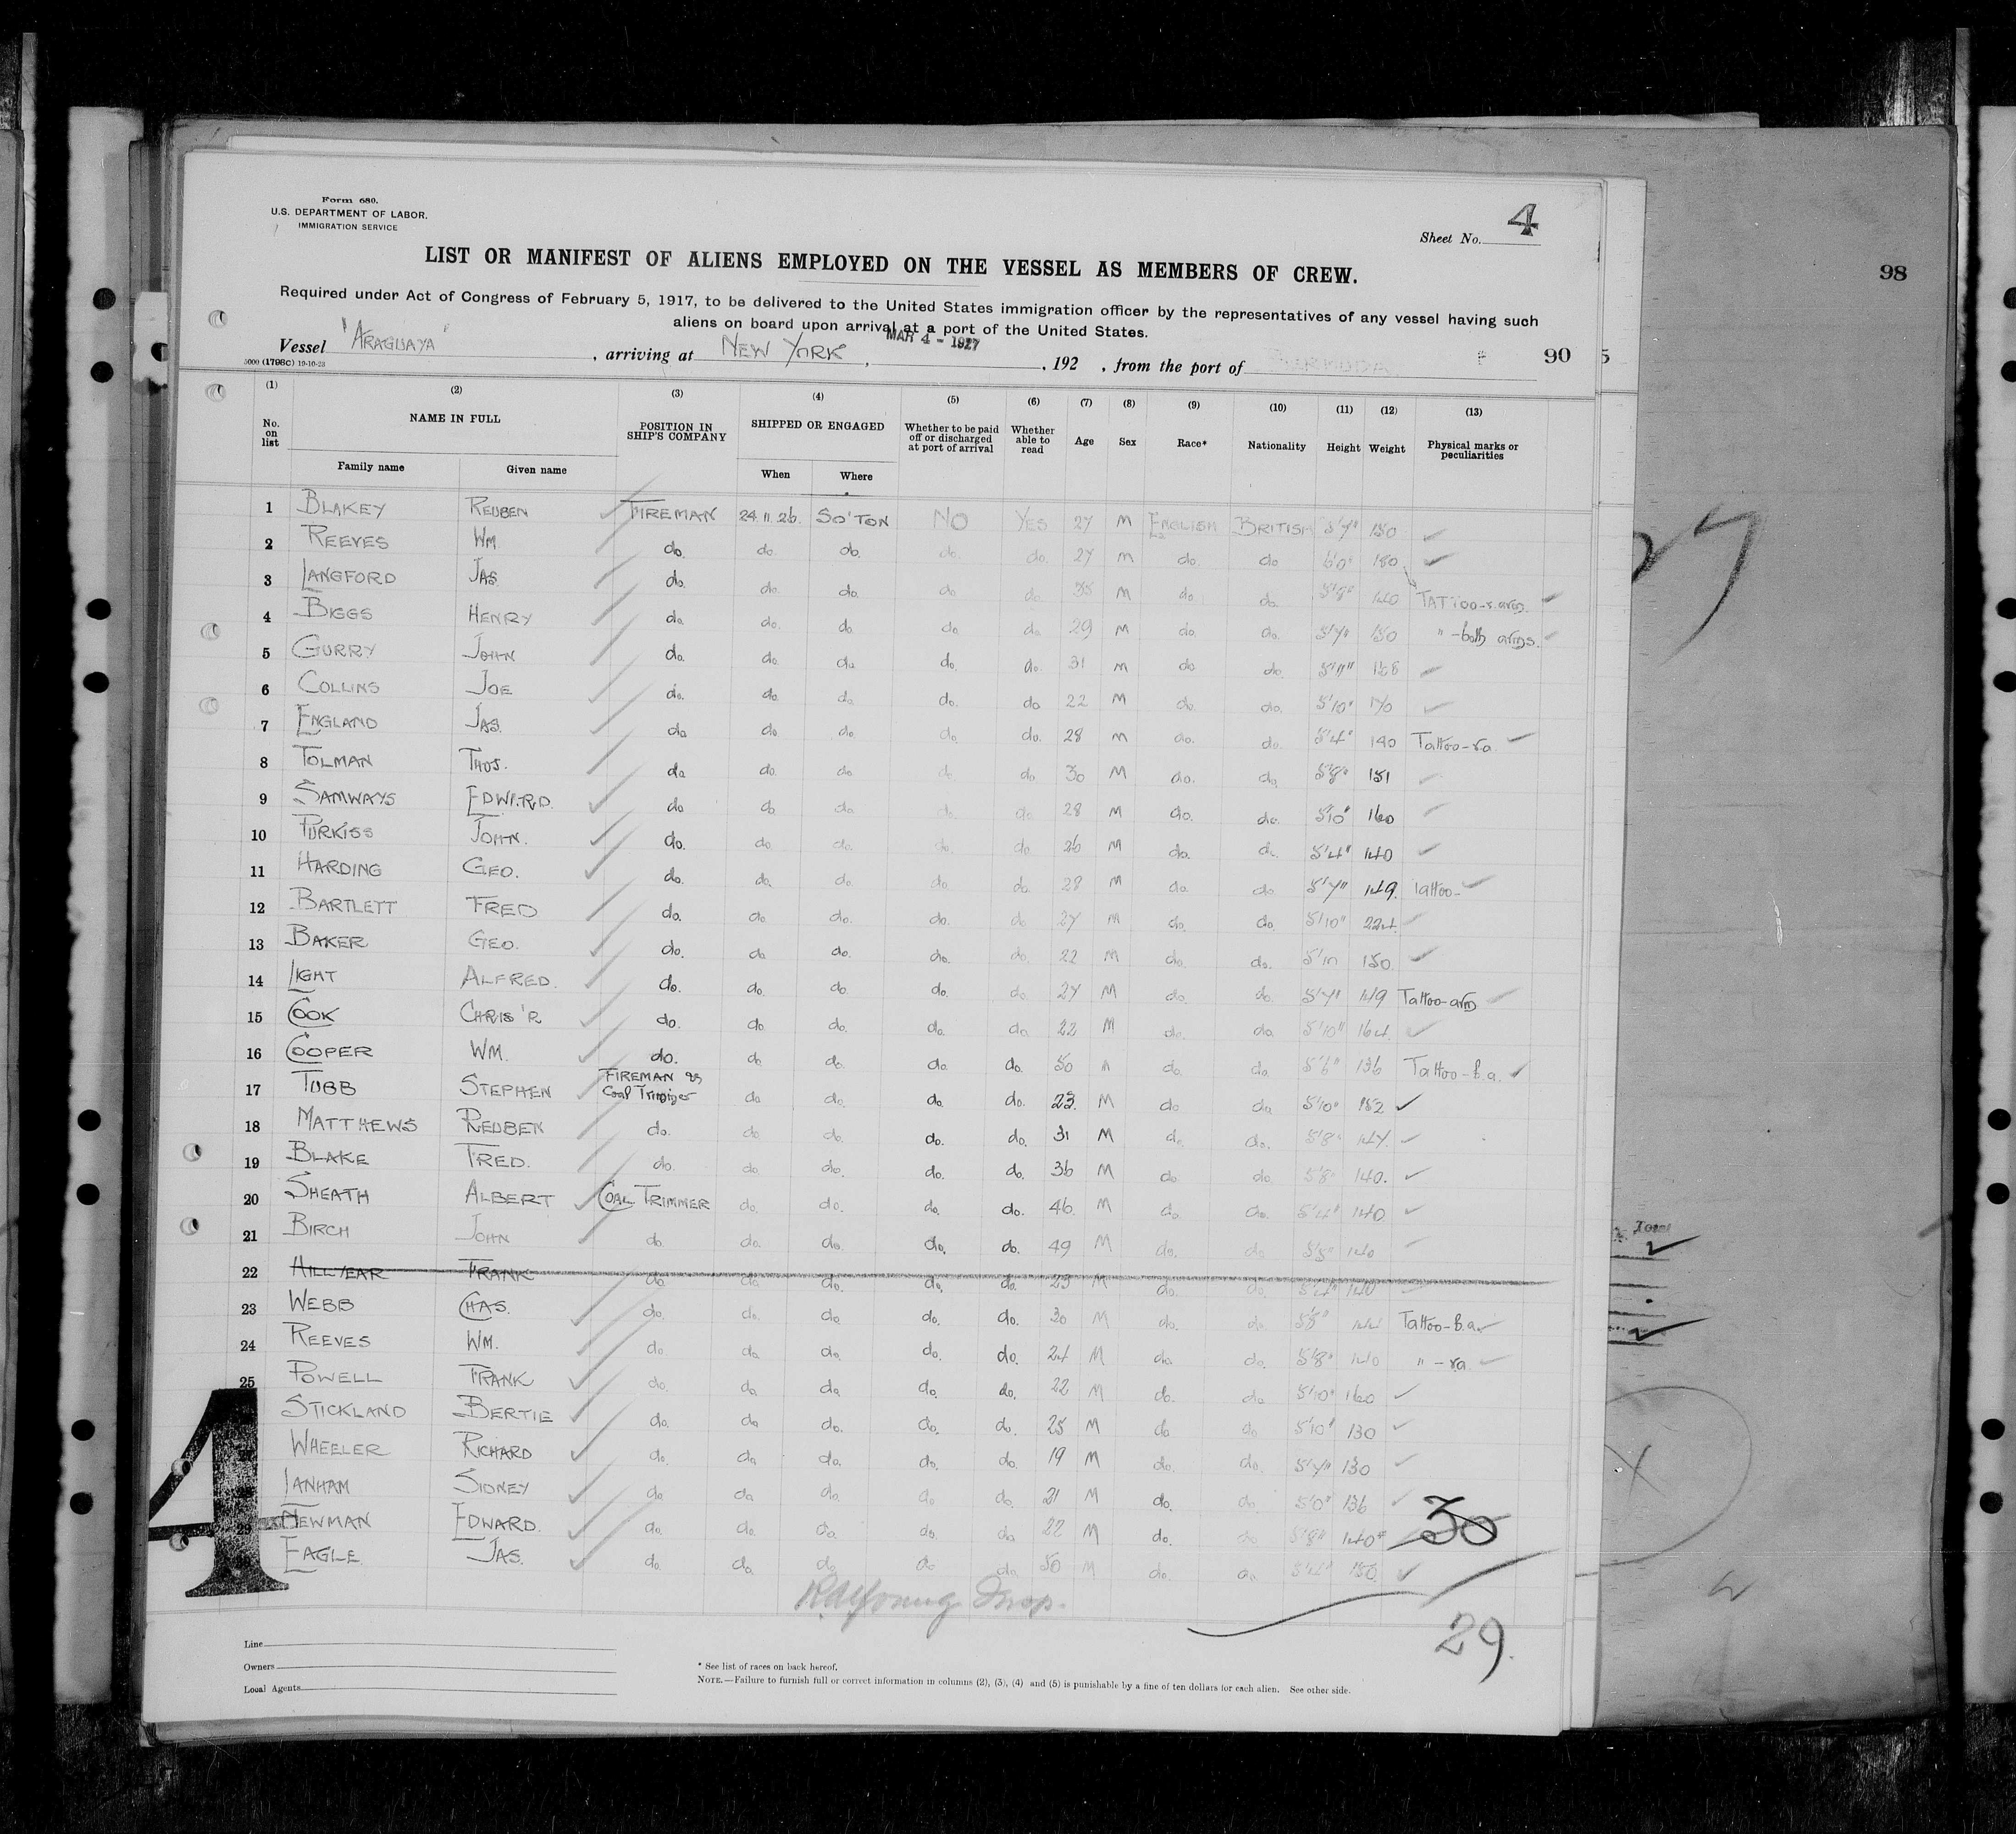 Form 680.
U.S. DEPARTMENT OF LABOR.
IMMIGRATION SERVICE
Sheet No. 4
LIST OR MANIFEST OF ALIENS EMPLOYED ON THE VESSEL AS MEMBERS OF CREW.
98
Required under Act of Congress of February 5, 1917, to be delivered to the United States immigration officer by the representatives of any vessel having such
aliens on board upon arrival at a port of the United States.
MAR 4 - 1927
Vessel "ARAGUAYA", arriving at NEW YORK, , 192 , from the port of BERMUDA 90 5
5000 (1798C) 19-10-23
(1) (2) (3) (4) (5) (6) (7) (8) (9) (10) (11) (12) (13)
No. on list NAME IN FULL POSITION IN SHIP'S COMPANY SHIPPED OR ENGAGED Whether to be paid off or discharged at port of arrival Whether able to read Age Sex Race* Nationality Height Weight Physical marks or peculiarities
Family name Given name When Where
1 BLAKEY REUBEN FIREMAN 24.11.26. SO'TON NO YES 27 M ENGLISH BRITISH 5'7" 150
2 REEVES WM. do. do. do. do. do. 27 M do. do 6'0" 180
3 LANGFORD JAS. do. do. do. do do. 35 M do. do. 5'8" 140 TATTOO-r.arm.
4 BIGGS HENRY do. do. do. do. do. 29 M do. do. 5'7" 150 " -both arms.
5 GURRY JOHN do. do. do do. do. 31 M do do. 5'11"
6 COLLINS JOE do. do. do. do. do 22 M do. do. 5'10" 170
7 ENGLAND JAS. do do. do. do. do. 28 M do. do. 5'4" 140 Tattoo-ra.
8 TOLMAN THOS. do do. do do. do 30 M do. do. 5'8" 151
9 SAMWAYS EDWARD. do do do. do. do. 28 M do. do. 5'10" 160
10 PURKISS JOHN. do. do. do. do. do. 26 M do. do. 5'4" 140
11 HARDING GEO. do. do. do. do. do. 28 M do. do 5'7" 149. Tattoo-
12 BARTLETT FRED do. do do. do. do 27 M do. do. 5'10" 224.
13 BAKER GEO. do. do do. do. do. 22 M do. do. 5'10 150.
14 LIGHT ALFRED. do. do. do. do. do. 27 M do. do. 5'7" 149 Tattoo-arm
15 COOK CHRIS'R do. do do. do. do. 22 M do. do. 5'10" 164.
16 COOPER WM. do. do do. do. do. 50 M do. do. 5'6" 136 Tattoo-b.a.
17 TUBB STEPHEN FIREMAN & Coal Trimmer do do. do. do. 23. M do do. 5'10" 152
18 MATTHEWS REUBEN do. do. do. do. do. 31 M do. do. 5'8" 147.
19 BLAKE FRED. do. do. do. do. do. 36 M do. do. 5'8" 140.
20 SHEATH ALBERT COAL TRIMMER do. do. do. do. 46. M do. do. 5'4" 140
21 BIRCH JOHN do. do. do. do. do. 49 M do. do 140
22 HILLYEAR FRANK do. do. do. do. do. 23 M do. do. 5'4" 140
23 WEBB CHAS. do. do. do do. do. 30 M do. do. 5'8" Tattoo-b.a.
24 REEVES WM. do. do do. do. do. 24 M do. do. 5'8" 140 " - ra.
25 POWELL FRANK do. do do do. do. 22 M do. do. 5'10" 160
STICKLAND BERTIE do. do do. do. do. 25 M do do 5'10" 130
WHEELER RICHARD do. do do. do. do. 19 M do. do. 5'7" 130
LANHAM SIDNEY do do do. do do. 21 M do. do 136
29 NEWMAN EDWARD. do. do. do. do. do 22 M do. do 5'8" 140 30
EAGLE JAS. do. do. do do do. 50 M do. do. 5'4" 150.
4
29.
Line
Owners
Local Agents
* See list of races on back hereof.
NOTE.—Failure to furnish full or correct information in columns (2), (3), (4) and (5) is punishable by a fine of ten dollars for each alien. See other side.